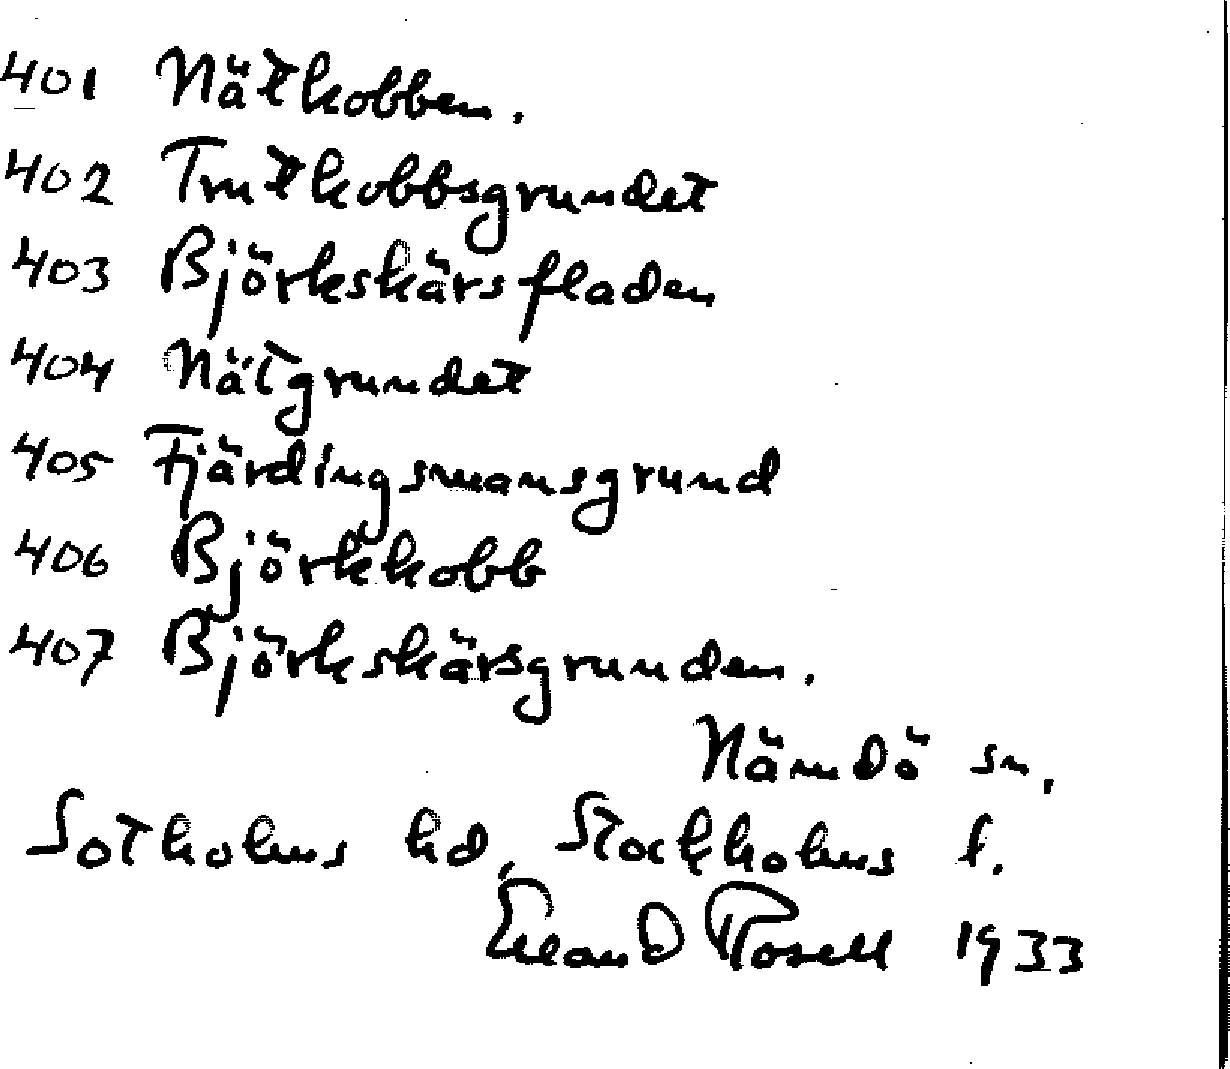 401 Nätkobben.
402 Trutkobbsgrundet
403 Björkskärsfladen
404 Nätgrundet
405 Fjärdingsmansgrund
406 Björkkobb
407 Björkskärsgrunden.
Nämdö sn.
Sotholms hd, Stockholms l.
Erland Rosell 1933